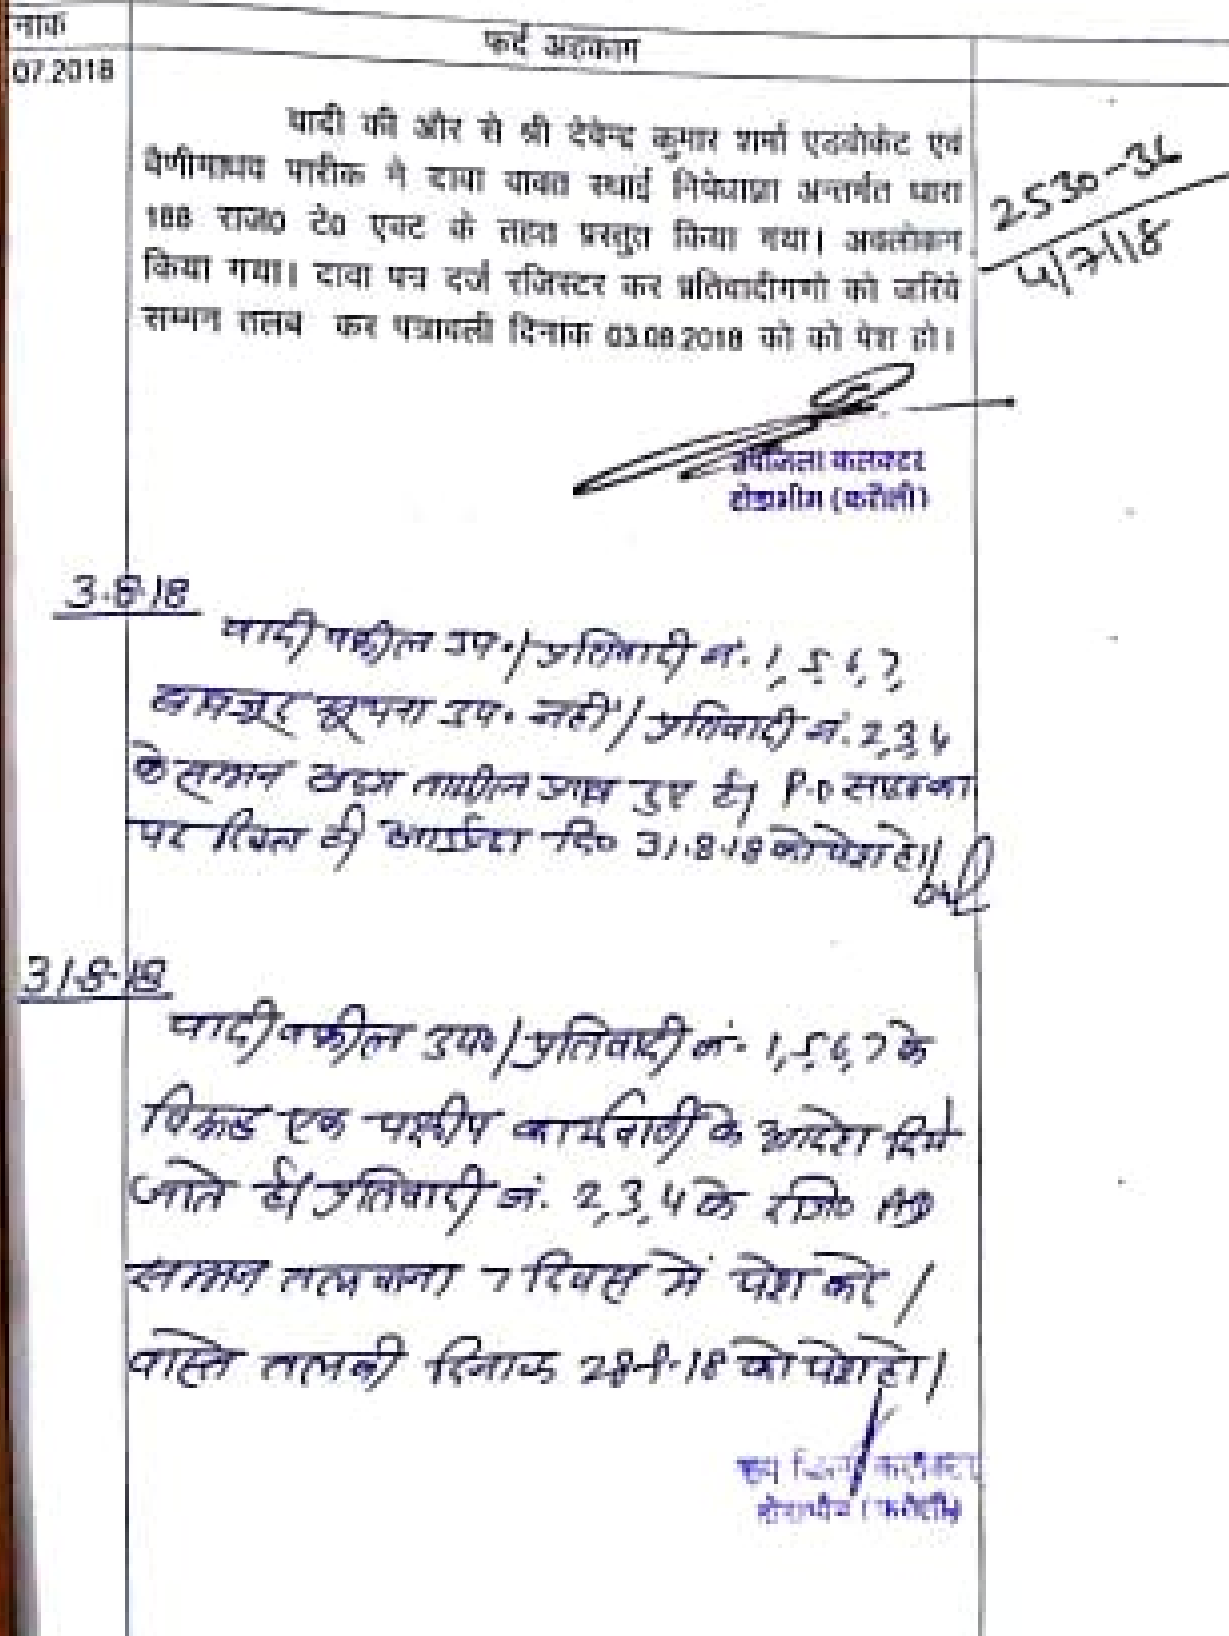 नांक
फर्द अहकाम
07.2018
वादी की और से श्री देवेन्द्र कुमार शर्मा एडवोकेट एवं
वैणीमाधव पारीक ने दावा वावत स्थाई निषेधाज्ञा अन्तर्गत धारा
188 राज0 टे0 एक्ट के तहत प्रस्तुत किया गया। अवलोकन
किया गया। दावा पत्र दर्ज रजिस्टर कर प्रतिवादीगणो को जरिये
सम्मन तलब कर पत्रावली दिनांक 03.08.2018 को को पेश हो।
2530-36
4/7/18
उपजिला कलक्टर
टोडाभीम (करौली)
3.8.18
वादी वकील उप०/ प्रतिवादी नं. 1, 5, 6, 7,
बावजूद सूचना उप० नहीं/ प्रतिवादी नं. 2,3,4
के सम्मन अदम तामील प्राप्त हुए है। P.O साहब का
पद रिक्त है। आईन्दा दि० 31.8.18 को पेश हो।
31-8-18
वादी वकील उप०/ प्रतिवादी नं. 1,5,6,7 के
विरूद्ध एक पक्षीय कार्यवाही के आदेश दिये
जाते है। प्रतिवादी नं. 2,3,4 के रजि० AD
सम्मन तलवाना 7 दिवस में पेश करे।
वास्ते तलबी दिनांक 28-9-18 को पेश हो।
उप जिला कलक्टर
टोडाभीम (करौली)